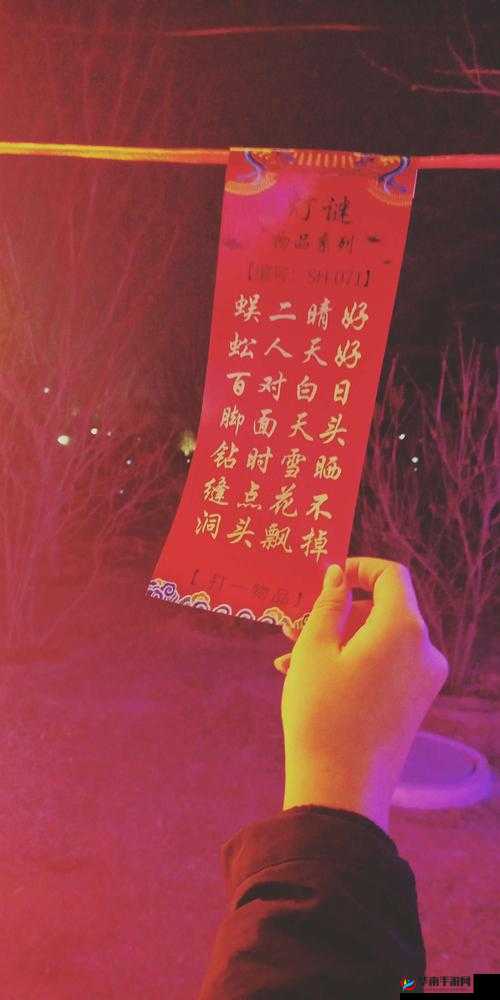 灯谜
物品系列
【编号：SH071】
好好日头晒不掉
晴天白天雪花飘
二人对面时点头
蜈蚣百脚钻缝洞
【打一物品】
华南手游网